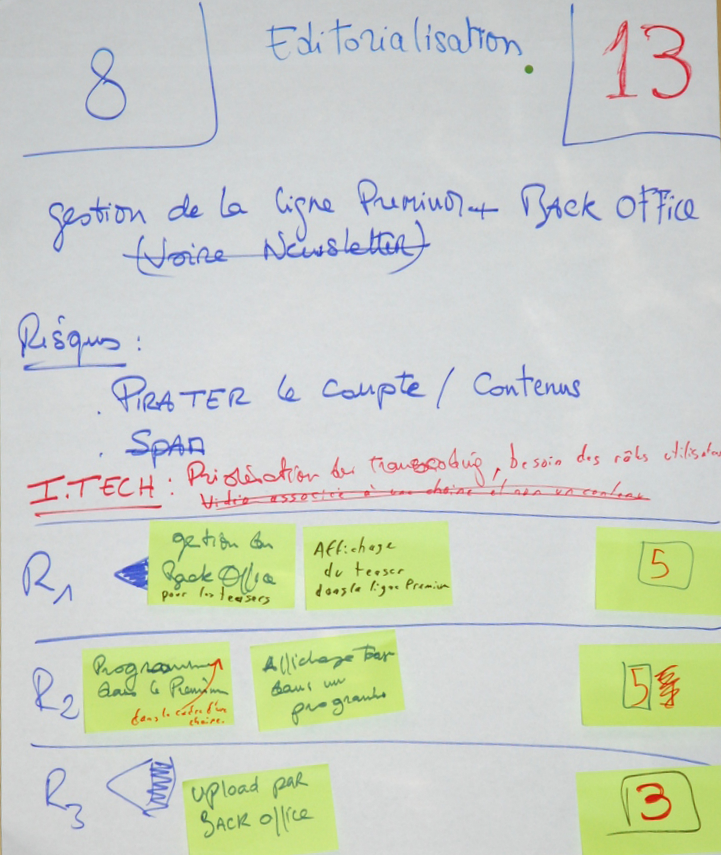 8
Editorialisation
13
gestion de la ligne Premium + BACK OFFICE
(Voire Newsletter)
Risques :
. PIRATER le compte / Contenus
. SPAM
I.TECH : Priorisation du transcoding, besoin des rôles utilisateu
Vidéo associée à une chaine et non un contenu
R1
gestion du
Back Office
pour les teasers
Affichage
du teaser
dans la ligne Premium
5
R2
Programme
dans le Premium
dans le cadre d'une
chaine.
Affichage
dans un
programme
5
R3
Upload par
BACK office
3